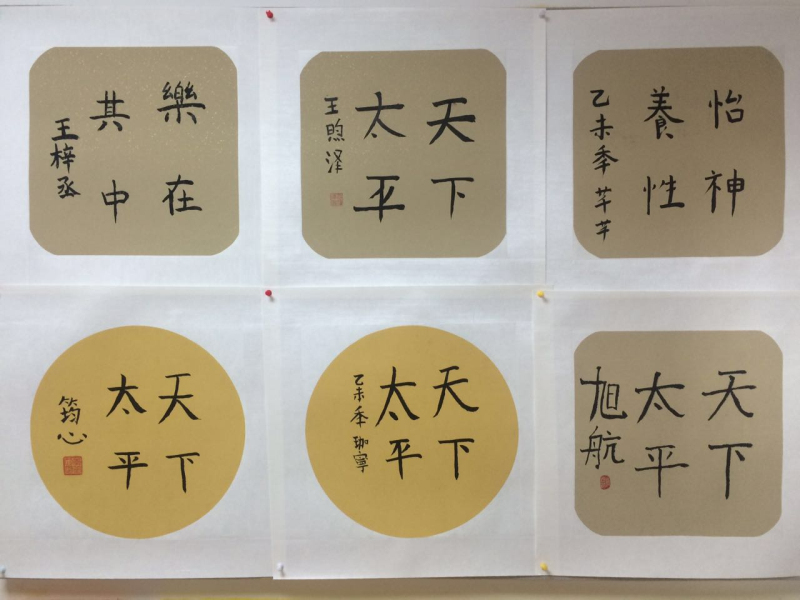 樂在
其中
王梓丞
天下
太平
王煦泽
怡神
養性
乙未季芊芊
天下
太平
筠心
天下
太平
乙未季珈寧
天下
太平
旭航